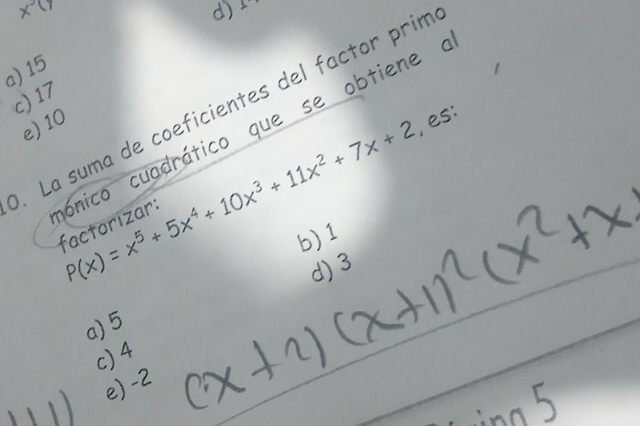 d) 1
a) 15
c) 17
e) 10
10. La suma de coeficientes del factor primo
mónico cuadrático que se obtiene al
factorizar:
P(x) = x⁵ + 5x⁴ + 10x³ + 11x² + 7x + 2, es:
a) 5
b) 1
c) 4
d) 3
e) -2
(x+2)(x+1)²(x²+x+
5